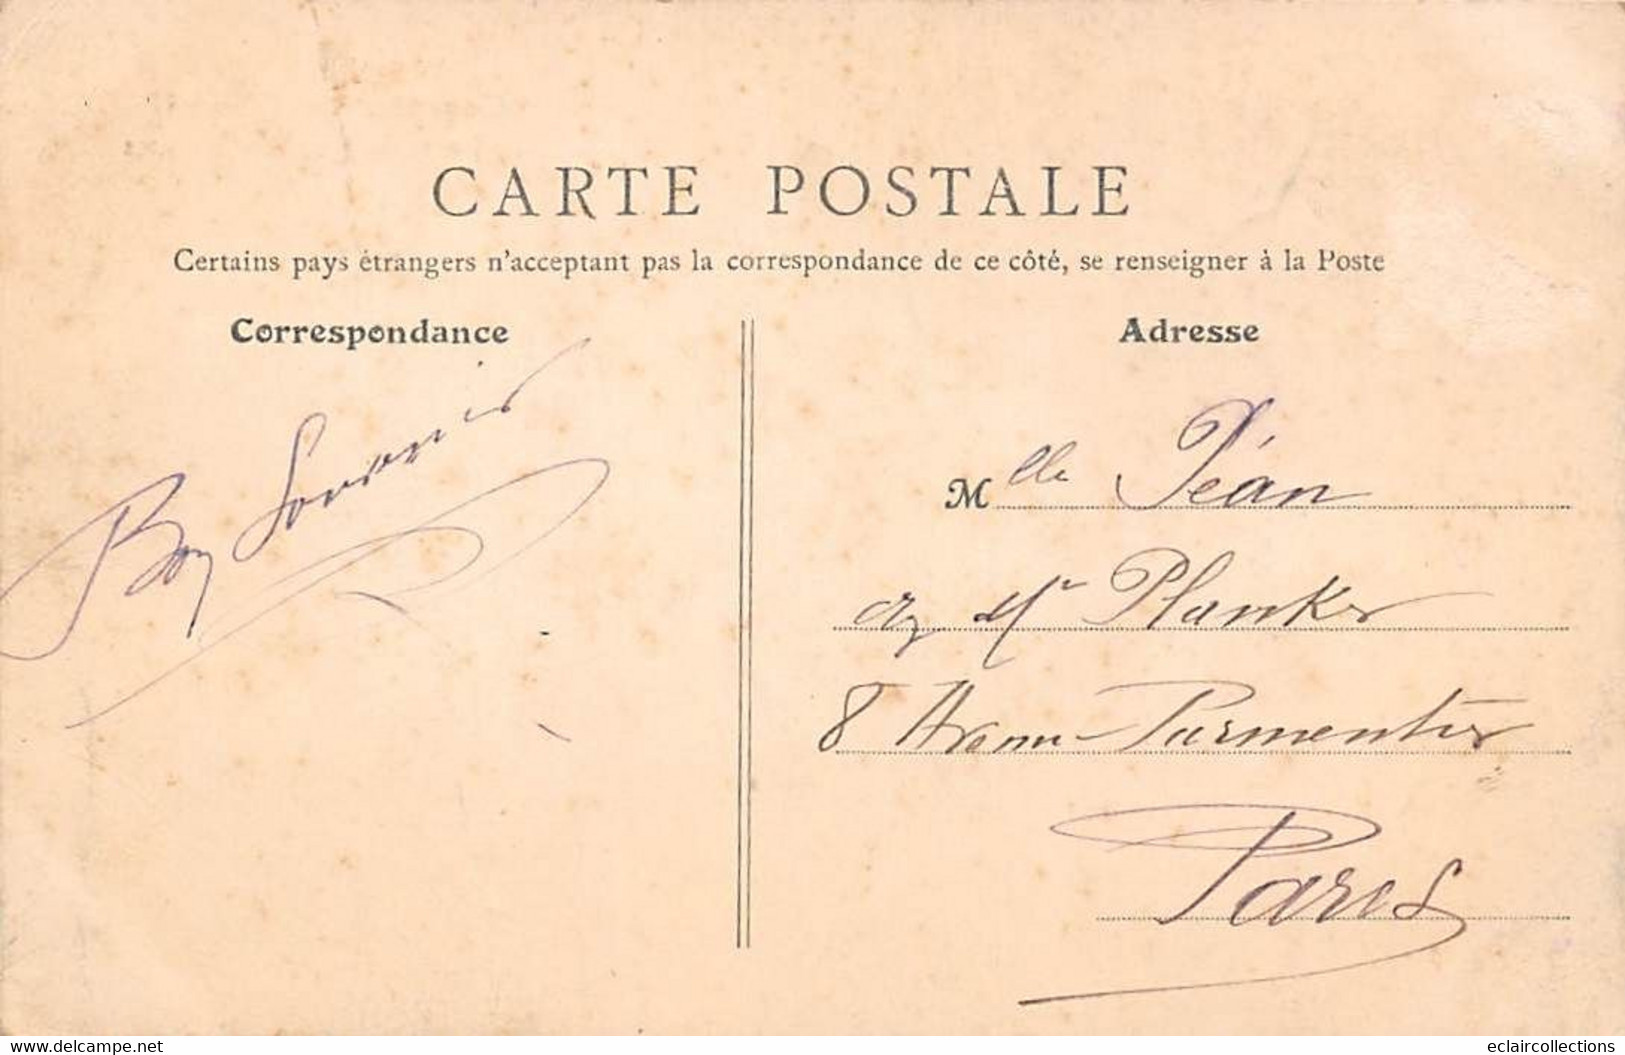 CARTE POSTALE
Certains pays étrangers n'acceptant pas la correspondance de ce côté, se renseigner à la Poste
Correspondance
Adresse
Bon Souvenir
Mlle Péan
chez Mr
8 Avenue Parmentier
Paris
www.delcampe.net
eclaircollections